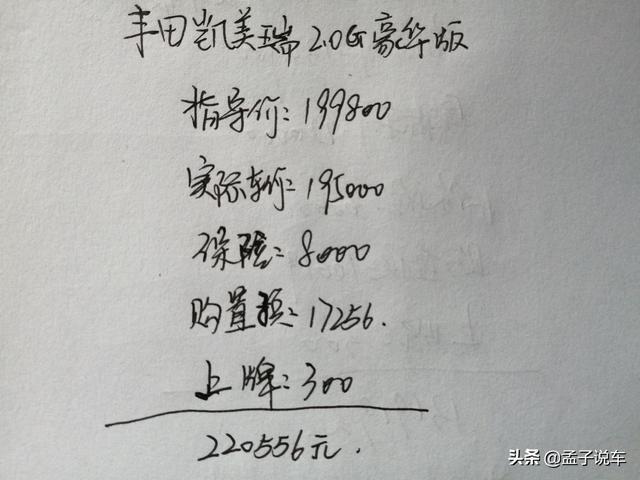 丰田凯美瑞2.0G豪华版
指导价:199800
实际车价:195000
保险:8000
购置税:17256.
上牌:300
220556元.
头条@孟子说车